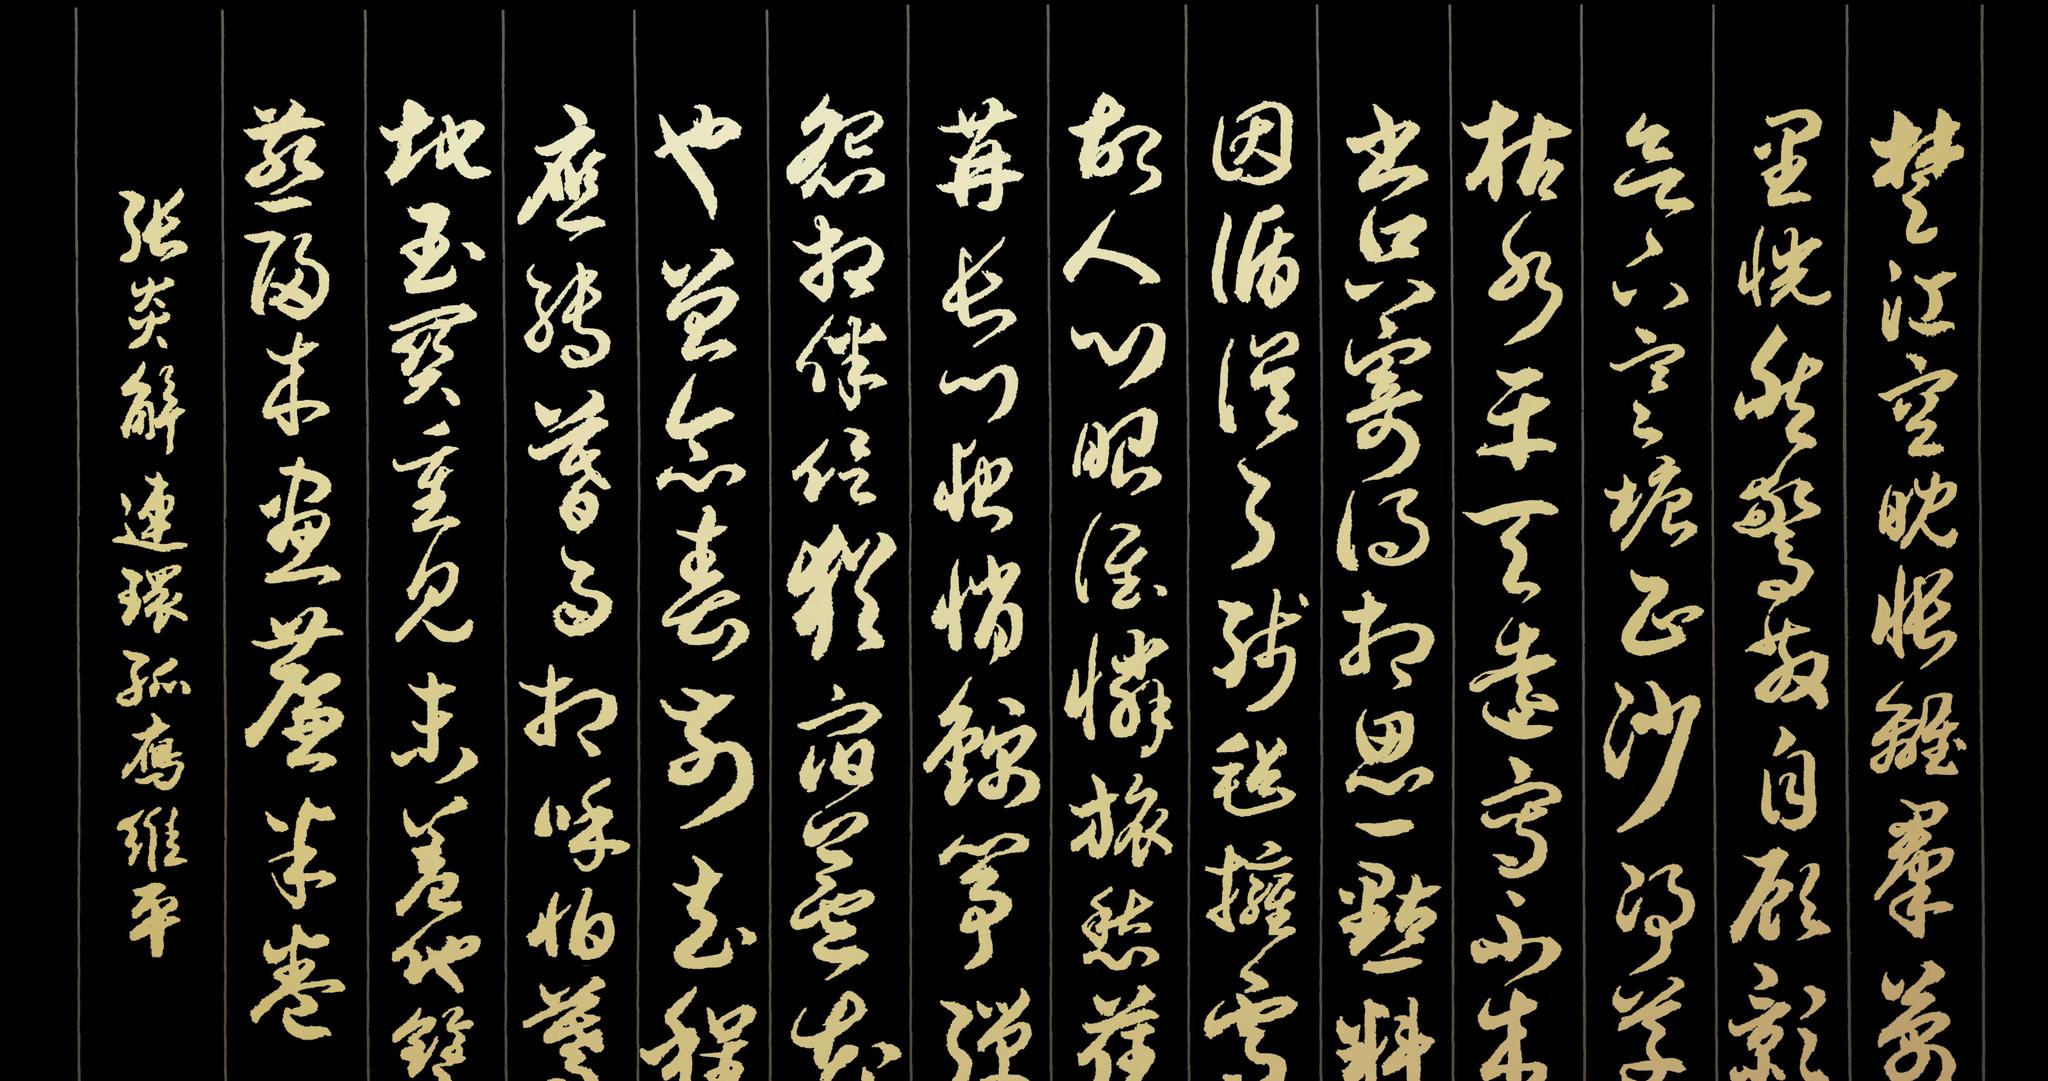 楚江空晚悵離羣萬
里恍然驚散自顧影
下寒塘正沙淨草
枯水平天遠寫不成
書只寄得相思一點料
因循誤了殘氈擁雪
故人心眼誰憐旅愁荏
苒長門夜悄錦箏彈
怨想伴侶猶宿蘆花
也曾念春前去程
應轉暮雨相呼怕驀
地玉關重見未羞他雙
燕歸來畫簾半卷
張炎解連環孤雁維平